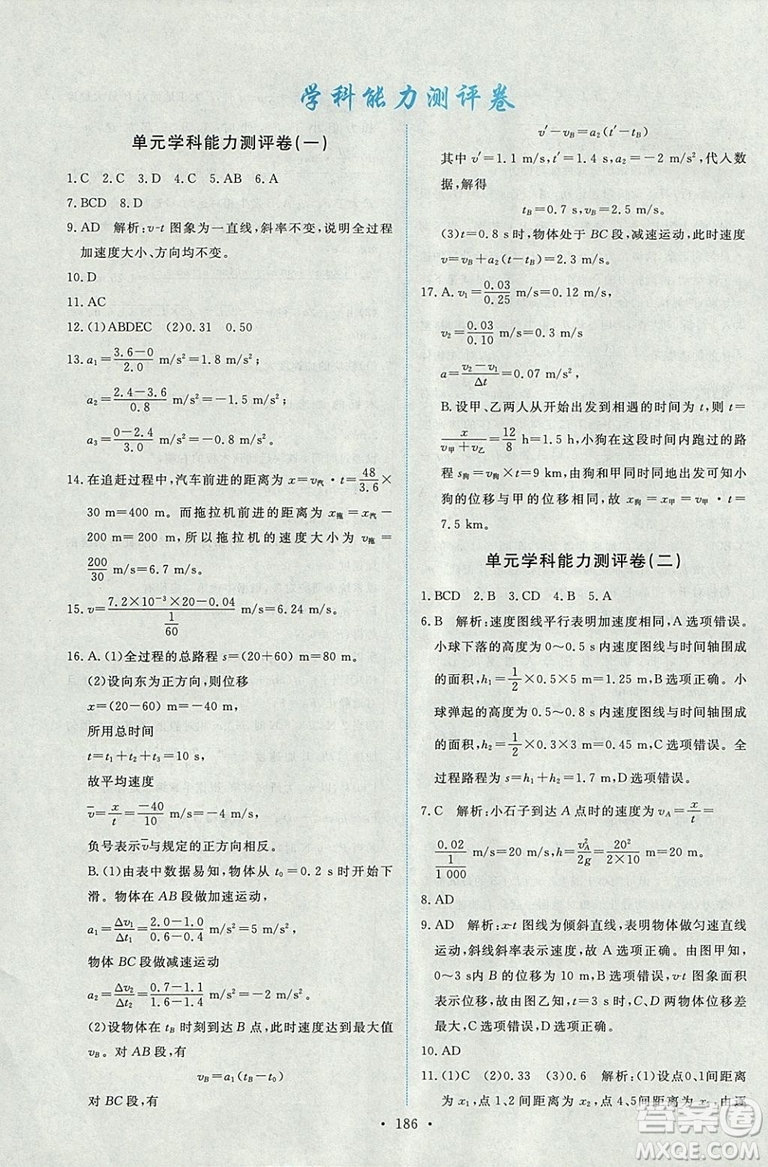 学科能力测评卷
单元学科能力测评卷(一)
1.C 2.C 3.D 4.C 5.AB 6.A
7.BCD 8.D
9.AD 解析:v-t 图象为一直线,斜率不变,说明全过程
加速度大小、方向均不变。
10.D
11.AC
12.(1)ABDEC (2)0.31 0.50
13.a₁=(3.6-0)/2.0 m/s²=1.8 m/s²;
a₂=(2.4-3.6)/0.8 m/s²=-1.5 m/s²;
a₃=(0-2.4)/3.0 m/s²=-0.8 m/s²
14.在追赶过程中,汽车前进的距离为 x=v汽·t=48/3.6×
30 m=400 m。而拖拉机前进的距离为 x拖=x汽-
200 m=200 m,所以拖拉机的速度大小为 v拖=
200/30 m/s=6.7 m/s。
15.v=(7.2×10⁻³×20×20)/(1/60) m/s=6.24 m/s。
16.A.(1)全过程的总路程 s=(20+60) m=80 m。
(2)设向东为正方向,则位移
x=(20-60) m=-40 m,
所用总时间
t=t₁+t₂+t₃=10 s,
故平均速度
v̄=x/t=-40/10 m/s=-4 m/s。
负号表示v̄与规定的正方向相反。
B.(1)由表中数据易知,物体从 t₀=0.2 s 时开始下
滑。物体在 AB 段做加速运动,
a₁=Δv₁/Δt₁=(2.0-1.0)/(0.6-0.4) m/s²=5 m/s²,
物体 BC 段做减速运动
a₂=Δv₂/Δt₂=(0.7-1.1)/(1.6-1.4) m/s²=-2 m/s²。
(2)设物体在 tB 时刻到达 B 点,此时速度达到最大值
vB。对 AB 段,有
vB=a₁(tB-t₀)
对 BC 段,有
v′-vB=a₂(t′-tB)
其中 v′=1.1 m/s,t′=1.4 s,a₂=-2 m/s²,代入数
据,解得
tB=0.7 s,vB=2.5 m/s。
(3)t=0.8 s 时,物体处于 BC 段,减速运动,此时速度
v=vB+a₂(t-tB)=2.3 m/s。
17.A.v₁=0.03/0.25 m/s=0.12 m/s,
v₂=0.03/0.10 m/s=0.30 m/s,
a=(v₂-v₁)/Δt=0.05 m/s²
B.设甲、乙两人从开始出发到相遇的时间为 t,则 t=
x/(v甲+v乙)=12/8 h=1.5 h,小狗在这段时间内跑过的路
程 s狗=v狗×t=9 km,由狗和甲同时同地出发可知小
狗的位移与甲的位移相同,故 x狗=x甲=v甲·t=
7.5 km。
单元学科能力测评卷(二)
1.BCD 2.B 3.CD 4.B 5.A
6.B 解析:速度图线平行表明加速度相同,A 选项错误。
小球下落的高度为 0~0.5 s 内速度图线与时间轴围成
的面积,h₁=1/2×0.5×5 m=1.25 m,B 选项正确。小
球弹起的高度为 0.5~0.8 s 内速度图线与时间轴围成
的面积,h₂=1/2×0.3×3 m=0.45 m,C 选项错误。全
过程路程为 h₁+h₂=1.7 m,D 选项错误。
7.C 解析:小石子到达 A 点时的速度为 vA=x/t=
0.02/(1/1 000) m/s=20 m/s,h=vA²/2g=20²/(2×10) m=20 m。
8.AD
9.AD 解析:x-t 图线为倾斜直线,表明物体做匀速直线
运动,斜线斜率表示速度,故 A 选项正确。由图甲知,
0~3 s 内的位移为 10 m,B 选项错误。v-t 图象面积
表示位移,故由图乙知,t=3 s 时两物体位移差
最大,C 选项错误,D 选项正确。
10.AD
11.(1)C (2)0.33 (3)0.6 解析:(1)由图可知,0、1间距离
为 x₁,点 1、2 间距离为 x₂,点 4、5间距离为
186
答案圈
MXQE.COM